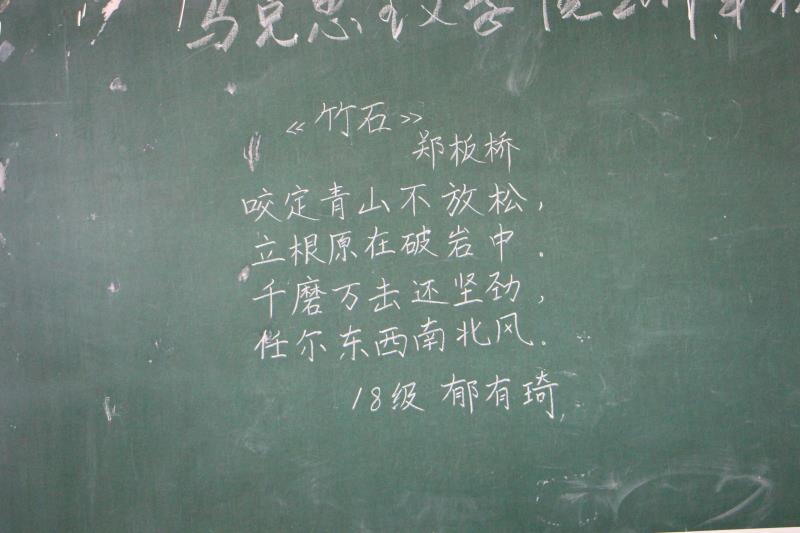 马克思主义学院2019年
《竹石》
郑板桥
咬定青山不放松,
立根原在破岩中.
千磨万击还坚劲,
任尔东西南北风.
18级 郁有琦